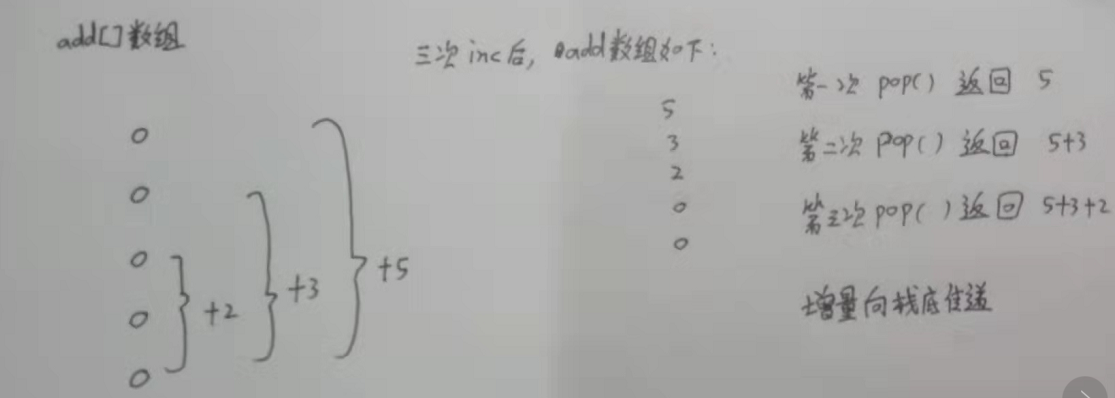 add[]数组
0
0
0
0
0
+2
+3
+5
三次inc后，add数组如下：
5
3
2
0
0
第一次 pop() 返回 5
第二次 pop() 返回 5+3
第三次 pop( ) 返回 5+3+2
增量向栈底传递